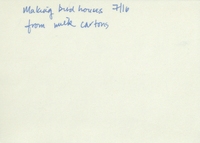 Making bird houses 7/16
from milk cartons